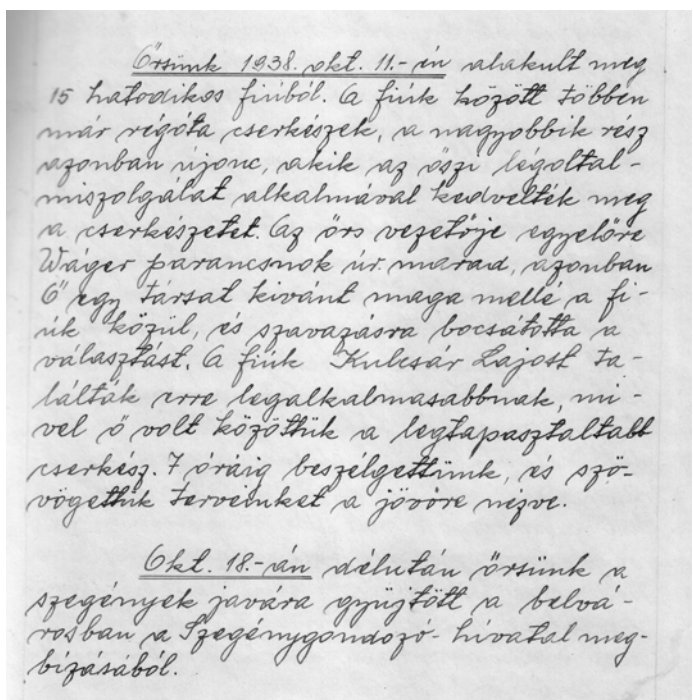 Őrsünk 1938. okt. 11.-én alakult meg
15 hatodikos fiúból. A fiúk között többen
már régóta cserkészek, a nagyobbik rész
azonban újonc, akik az őszi légoltal-
miszolgálat alkalmával kedvelték meg
a cserkészetet. Az őrs vezetője egyelőre
Wáger parancsnok úr marad, azonban
Ő egy társat kivánt maga mellé a fi-
úk közül, és szavazásra bocsátotta a
választást. A fiúk Kulcsár Lajost ta-
lálták erre legalkalmasabbnak, mi-
vel ő volt közöttük a legtapasztaltabb
cserkész. 7 óráig beszélgettünk, és szö-
vögettük terveinket a jövőre nézve.
Okt. 18.-án délután őrsünk a
szegények javára gyüjtött a belvá-
rosban a Szegénygondozó-hivatal meg-
bízásából.